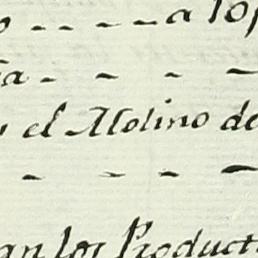 a los
el Molino de
an los Product